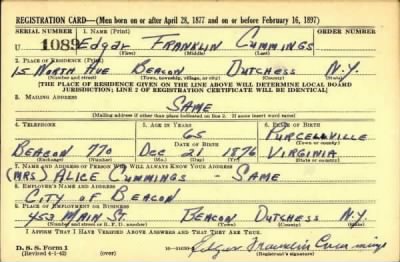 REGISTRATION CARD—(Men born on or after April 28, 1877 and on or before February 16, 1897)
SERIAL NUMBER 1. NAME (Print) ORDER NUMBER
U 1089 Edgar FRANKLIN Cummings
(First) (Middle) (Last)
2. PLACE OF RESIDENCE (Print)
15 NORTH AVE BEACON DUTCHESS N.Y.
(Number and street) (Town, township, village, or city) (County) (State)
[THE PLACE OF RESIDENCE GIVEN ON THE LINE ABOVE WILL DETERMINE LOCAL BOARD
JURISDICTION; LINE 2 OF REGISTRATION CERTIFICATE WILL BE IDENTICAL]
3. MAILING ADDRESS
SAME
(Mailing address if other than place indicated on line 2. If same insert word same)
4. TELEPHONE 5. AGE IN YEARS 6. PLACE OF BIRTH
65 PURCELLVILLE
DATE OF BIRTH (Town or county)
BEACON 770 DEC 21 1876 VIRGINIA
(Exchange) (Number) (Mo.) (Day) (Yr.) (State or country)
7. NAME AND ADDRESS OF PERSON WHO WILL ALWAYS KNOW YOUR ADDRESS
(MRS) ALICE CUMMINGS - SAME
8. EMPLOYER'S NAME AND ADDRESS
CITY OF BEACON
9. PLACE OF EMPLOYMENT OR BUSINESS
453 MAIN ST. BEACON DUTCHESS N.Y.
(Number and street or R. F. D. number) (Town) (County) (State)
I AFFIRM THAT I HAVE VERIFIED ABOVE ANSWERS AND THAT THEY ARE TRUE.
D. S. S. Form 1 Edgar Franklin Cummings
(Revised 4-1-42) (over) (Registrant's signature)